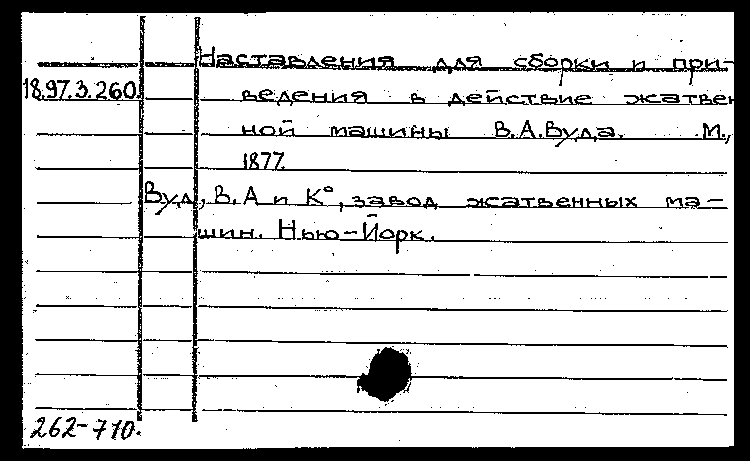 Наставления для сборки и при-
18.97.3.260. ведения в действие жатвен
ной машины В.А.Вуда. М.,
1877.
Вуд, В.А и К°, завод жатвенных ма-
шин. Нью-Йорк.
262-710.